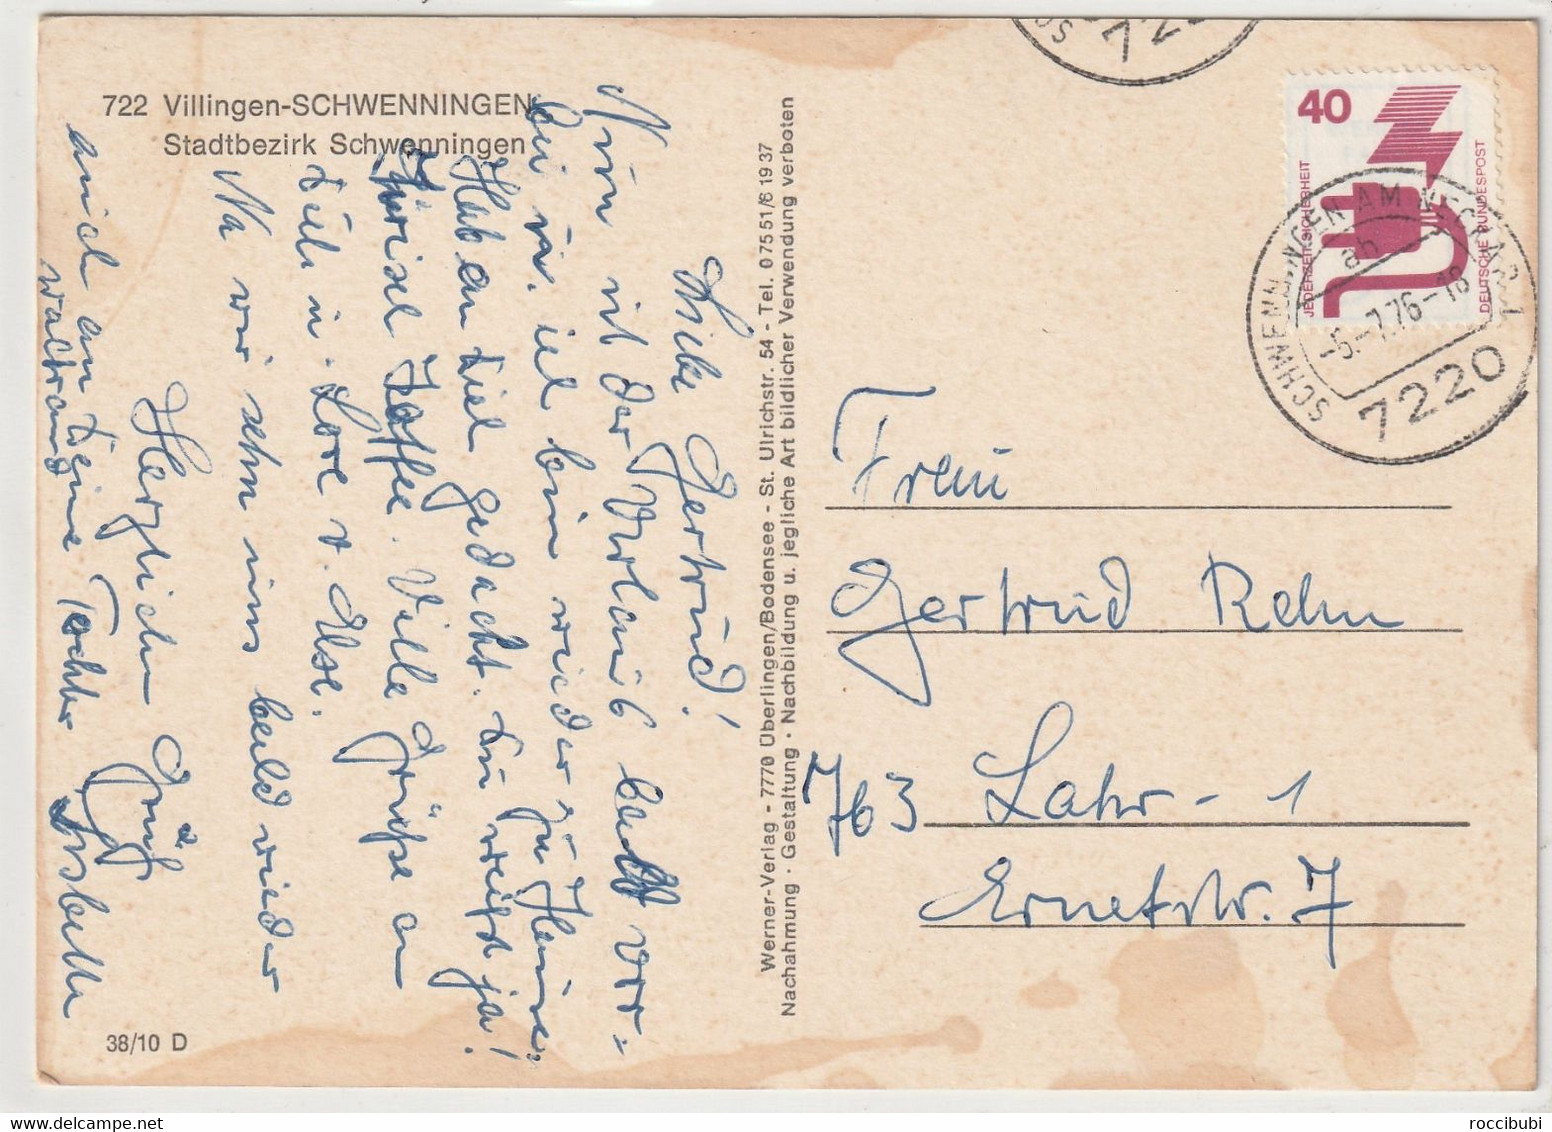 722 Villingen-SCHWENNINGEN
Stadtbezirk Schwenningen
Liebe Gertrud!
Nun ist der Urlaub bald vor=
bei u. ich bin wieder zu Hause.
Hab an Dich gedacht. Du weißt ja!
Kaffee. Viele Grüße an
Dich u. Lore u. Else.
Na wir sehn uns bald wieder
Herzliche Grüße
auch an Deine Tochter
Werner-Verlag - 7770 Überlingen/Bodensee - St. Ulrichstr. 54 - Tel. 07551/61937
Nachahmung · Gestaltung · Nachbildung u. jegliche Art bildlicher Verwendung verboten
40
JEDERZEIT SICHERHEIT
DEUTSCHE BUNDESPOST
SCHWENNINGEN AM NECKAR 1
ah
-5.-7.76-18
7220
Frau
Gertrud Rehm
763 Lahr-1
Ernetstr. 7
38/10 D
roccibubi